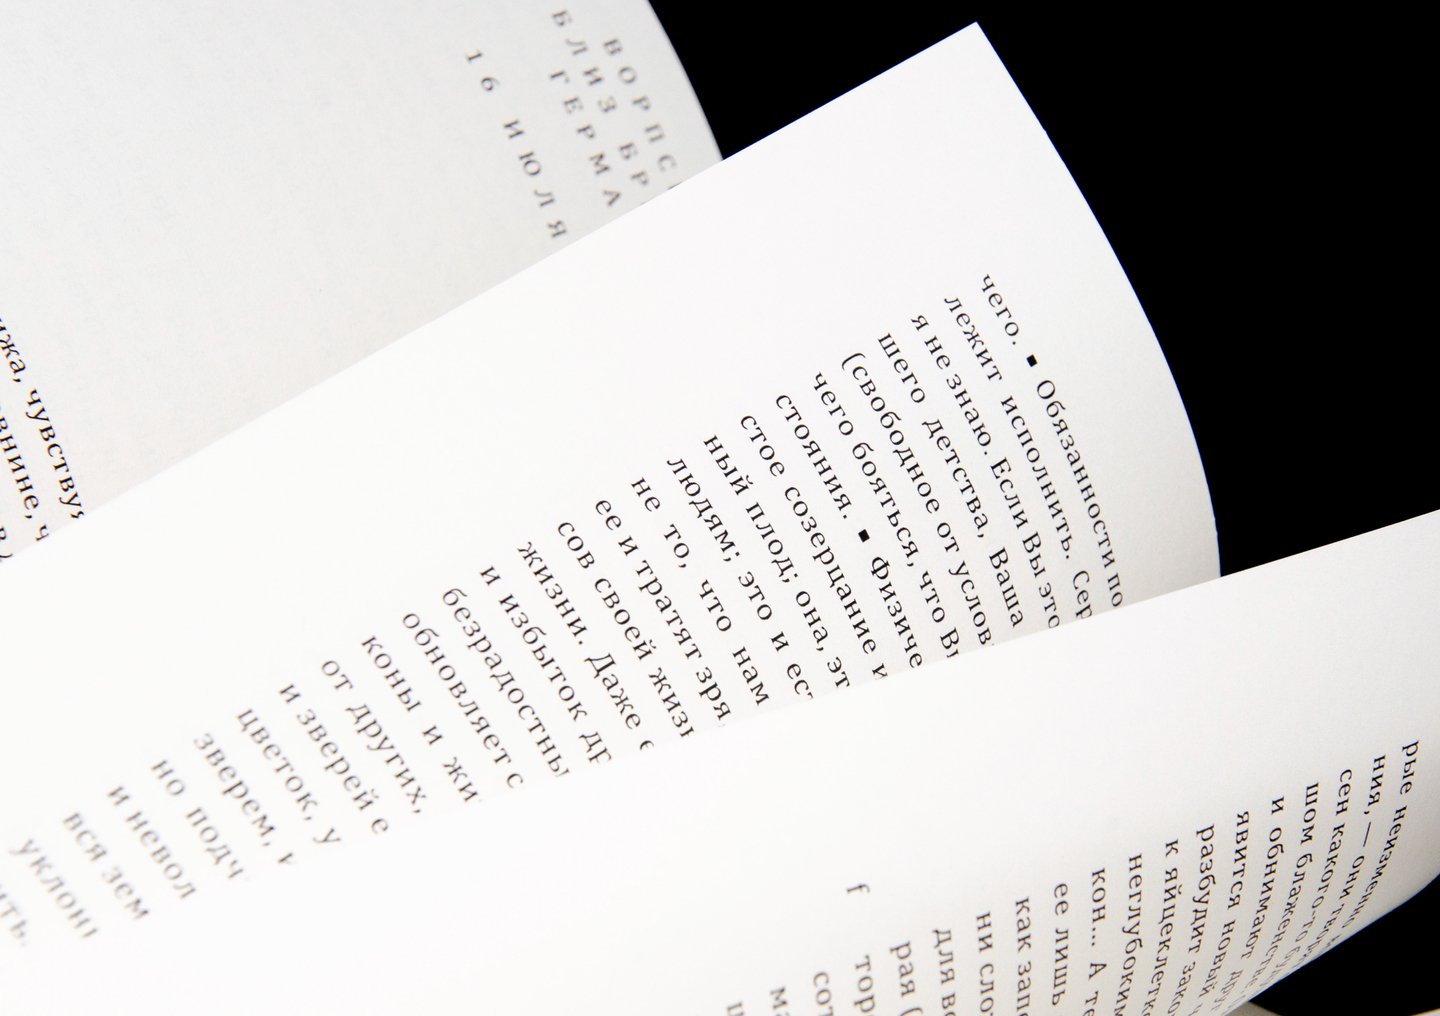 ВОРПС
БЛИЗ БР
ГЕРМА
16 ИЮЛЯ
чувствуя
чего. ▪ Обязанности по
лежит исполнить. Сер
я не знаю. Если Вы это
шего детства, Ваша
(свободное от услов
чего бояться, что
стояния. ▪ Физиче
стое созерцание и
ный плод; она, эт
людям; это и ес
не то, что нам
ее и тратят зря
сов своей жиз
жизни. Даже
и избыток др
безрадостны
обновляет с
коны и жи
от других,
и зверей е
цветок, у
зверем,
но подч
и невол
вся зем
уклон
ить.
рые неизменно
ния, — они творят
сен какого-то буд
шом блаженстве.
и обнимают друг
явится новый
разбудит зако
к яйцеклетк
неглубоким
кон... А те
ее лишь
как запе
ни слот
для во
рая (
f тор
сот
ма